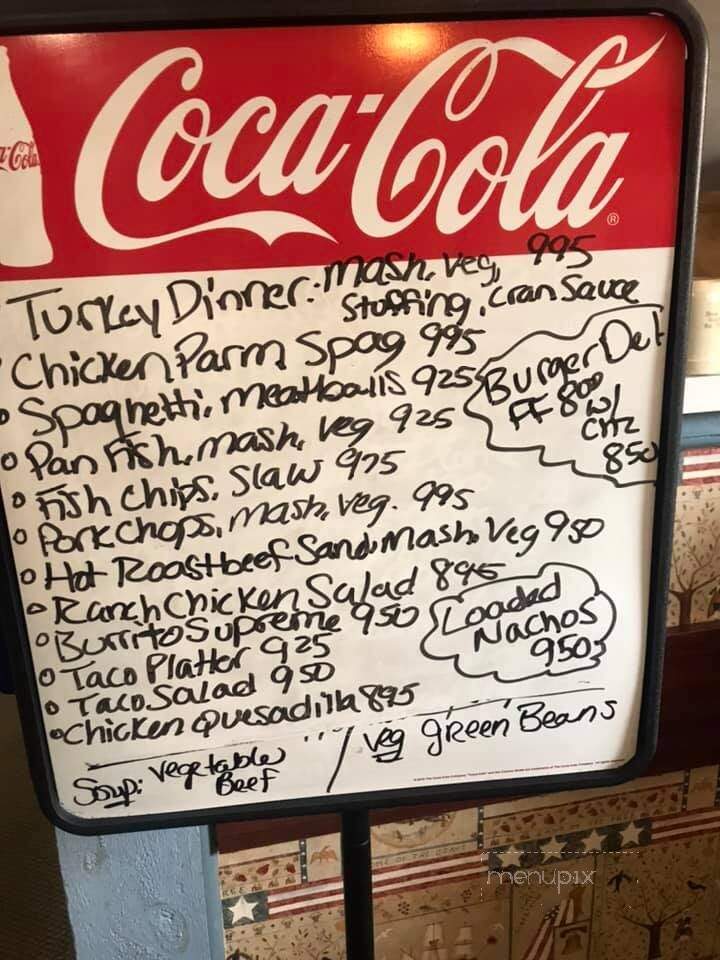 Coca-Cola
Coca-Cola
Turkey Dinner: mash, veg, 995
Stuffing, Cran Sauce
Chicken Parm Spag 995
Spaghetti, meatballs 925
Burger Del
FF 800
w/
CHZ
850
Pan Fish, mash, veg 925
Fish Chips, Slaw 975
Pork Chops, mash, veg. 995
Hot Roastbeef Sand. Mash. Veg 950
Ranch Chicken Salad 895
Burrito Supreme 950
Loaded
Nachos
950
Taco Platter 925
Taco Salad 950
Chicken Quesadilla 895
Soup: Vegetable
Beef
/ Veg green Beans
menupix